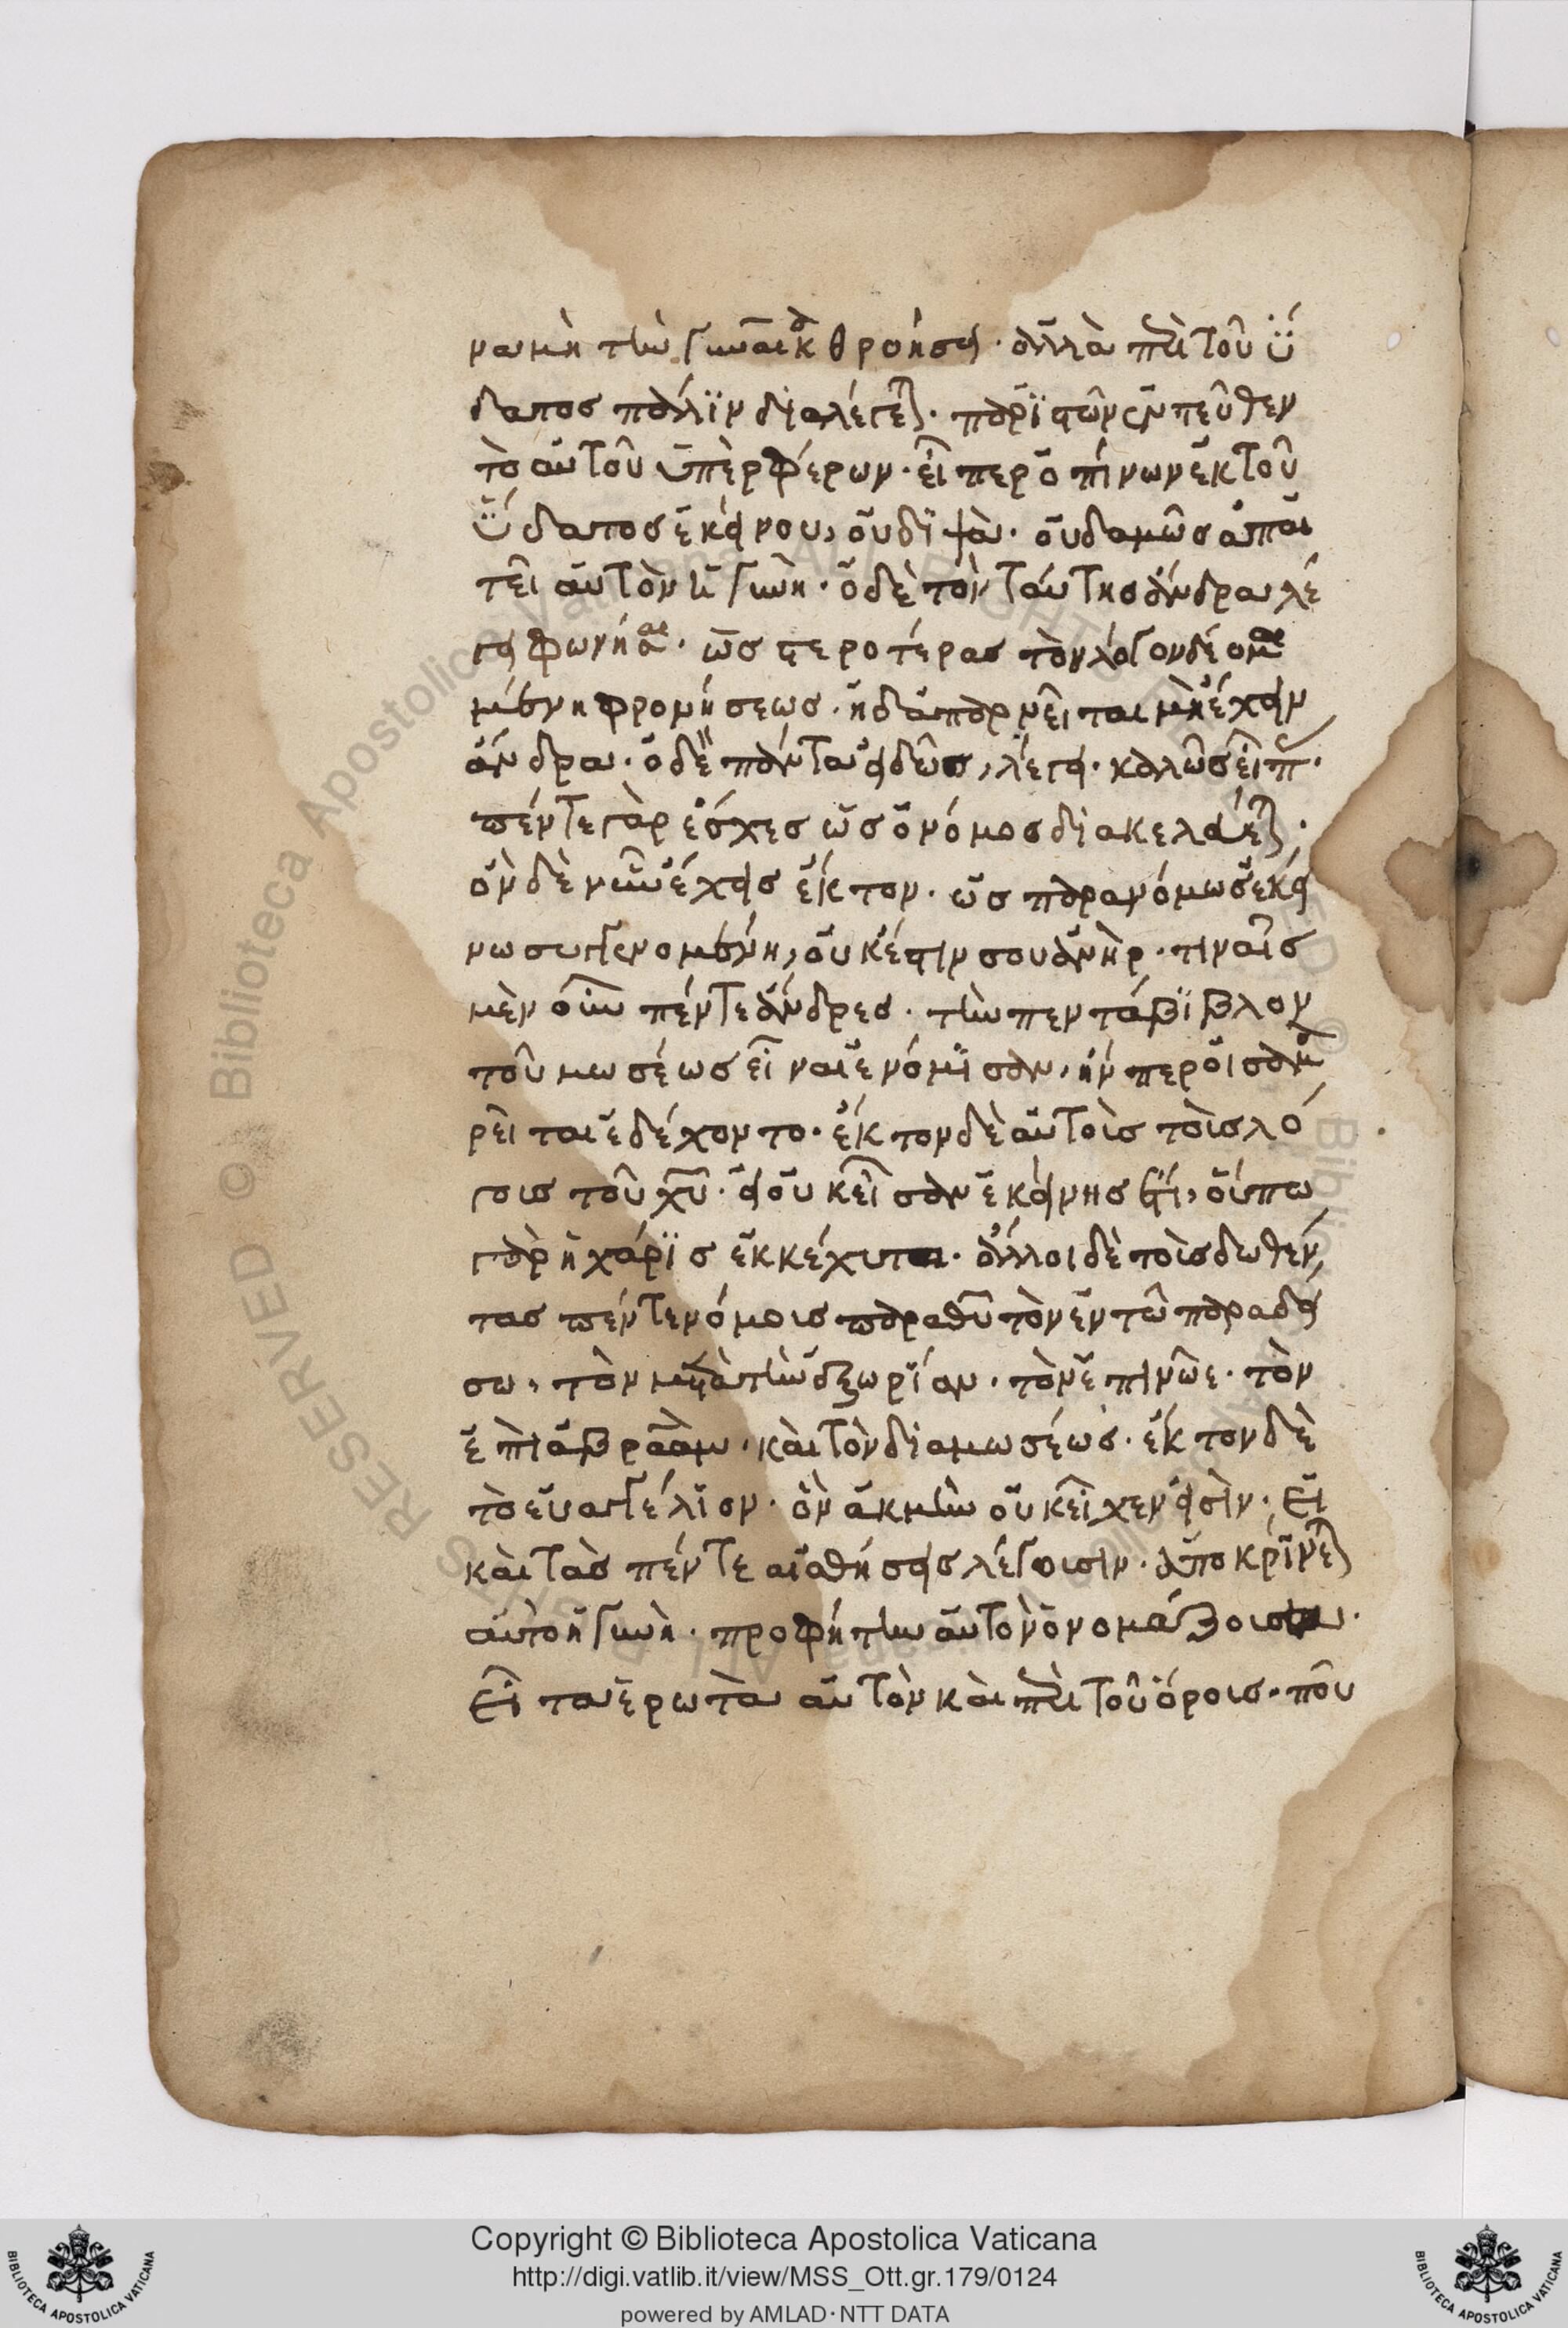 να μὴ τὴν γυναῖκα θροήσῃ· ἀλλὰ περὶ τοῦ ὕ
δατος πάλιν διαλέγεται· παριστῶν ἐντεῦθεν
τὸ αὐτοῦ ὑπερφέρων· εἴπερ ὁ πίνων ἐκ τοῦ
ὕδατος ἐκείνου, οὐ διψᾶ· οὐδαμῶς ἀπαι
τεῖ αὐτὸν ἡ γυνή· ὁ δὲ τὸν ταύτης ἄνδρα λέ
γει φωνῆσαι· ὡς στεροτέρας τὸν λόγον δεομέ
νης φρονήσεως· ἡ δ' ἀπαρνεῖται μὴ ἔχειν
ἄνδρα· ὁ δὲ πάντα εἰδὼς, λέγει· καλῶς εἶπ·
πέντε γὰρ ἔσχες ὡς ὁ νόμος διακελεύεται·
ὃν δὲ νῦν ἔχεις ἕκτον· ὡς παρανόμως ἐκεί
νω συγγενομένη, οὐκ ἔστιν σου ἀνήρ· τινὲς
μὲν οὖν πέντε ἄνδρες· τὴν πεντάβιβλον
τοῦ μωσέως εἶναι ἐνόμισαν, ἥνπερ οἱ σαμα
ρεῖται ἐδέχοντο· ἕκτον δὲ αὐτοῖς τοῖς λό
γοις τοῦ χυ· εἰ οὐκ εἰσὰν ἐκείνης ἔτι, οὔπω
γὰρ ἡ χάρις ἐκκέχυται· ἄλλοι δὲ τοῖς δωθέν
τας πέντε νόμοις παρα θυ τὸν ἐν τῷ παραδεί
σω, τὸν μετὰ τὴν ἐξωρίαν· τὸν ἐπὶ νῶε· τὸν
ἐπὶ ἀβραὰμ· καὶ τὸν διὰ μωσέως· ἕκτον δὲ
τὸ εὐαγγέλιον· ὃν ἀκμὴν οὐκ εἶχεν φησὶν· εἰ
καὶ τὰς πέντε αἰσθήσεις λέγουσιν· ἀποκρίνεται
αὐτὸ ἡ γυνή· προφήτην αὐτὸν ὀνομάζουσα·
εἶτα ἐρωτᾶ αὐτὸν καὶ περὶ τοῦ ὄρους· ποῦ
Copyright © Biblioteca Apostolica Vaticana
http://digi.vatlib.it/view/MSS_Ott.gr.179/0124
powered by AMLAD · NTT DATA